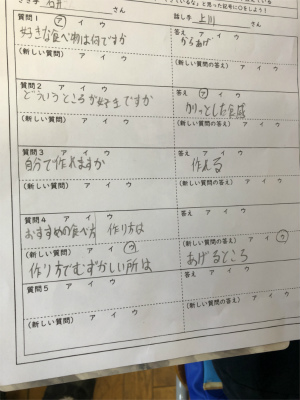 きき手 石井 さん
話し手 上川 さん
ているな」と思った記号に○をしよう!
質問1 ア イ ウ
好きな食べ物は何ですか
(新しい質問) ア イ ウ
答え ア イ ウ
からあげ
(新しい質問の答え) ア イ ウ
質問2 ア イ ウ
どういうところが好きですか
(新しい質問) ア イ ウ
答え ア イ ウ
カリっとした食感
(新しい質問の答え) ア イ ウ
質問3 ア イ ウ
自分で作れますか
(新しい質問) ア イ ウ
答え ア イ ウ
作れる
(新しい質問の答え) ア イ ウ
質問4 ア イ ウ
おすすめの食べ方 作り方は
(新しい質問) ア イ ウ
作り方でむずかしい所は
答え ア イ ウ
(新しい質問の答え) ア イ ウ
あげるところ
質問5 ア イ ウ
(新しい質問) ア イ ウ
答え ア イ ウ
(新しい質問の答え) ア イ ウ